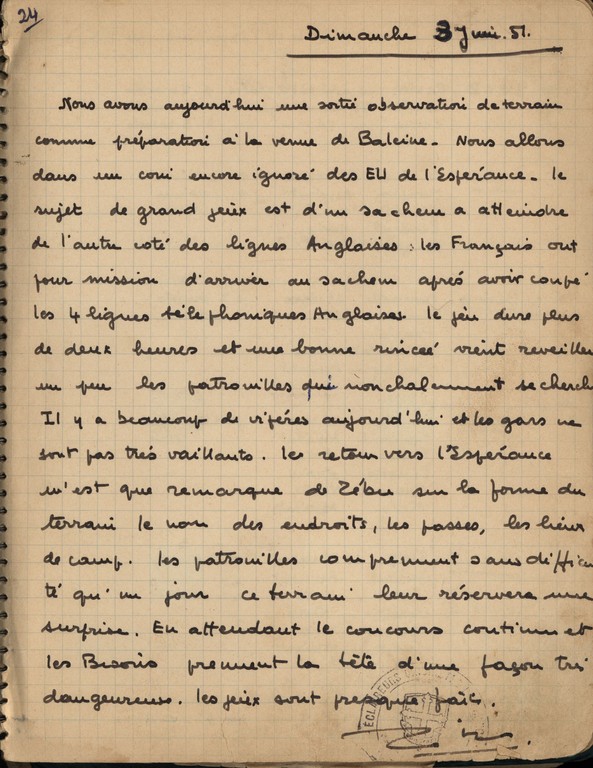 24
Dimanche 3 Juin. 51.
Nous avons aujourd'hui une sortie observation de terrain
comme préparation à la venue de Baleine. Nous allons
dans un coin encore ignoré des EU de l'Espérance. le
sujet de grand jeux est d'un sachem a atteindre
de l'autre coté des lignes Anglaises : les Français ont
pour mission d'arriver au sachem aprés avoir coupé
les 4 lignes téléphoniques Anglaises le jeu dure plus
de deux heures et une bonne rinceé vient reveiller
un peu les patrouilles qui nonchalemment se cherch
Il y a beaucoup de vipéres aujourd'hui et les gars ne
sont pas trés vaillants. le retour vers l'Espérance
n'est que remarque de Zébu sur la forme du
terrain le nom des endroits, les passes, les lieux
de camp. les patrouilles comprennent sans difficu
té qu'un jour ce terrain leur réservera une
surprise. En attendant le concours continu et
les Bisons prennent la tête d'une façon trés
dangeureuse. les jeux sont presque faits.
ECLAIREURS